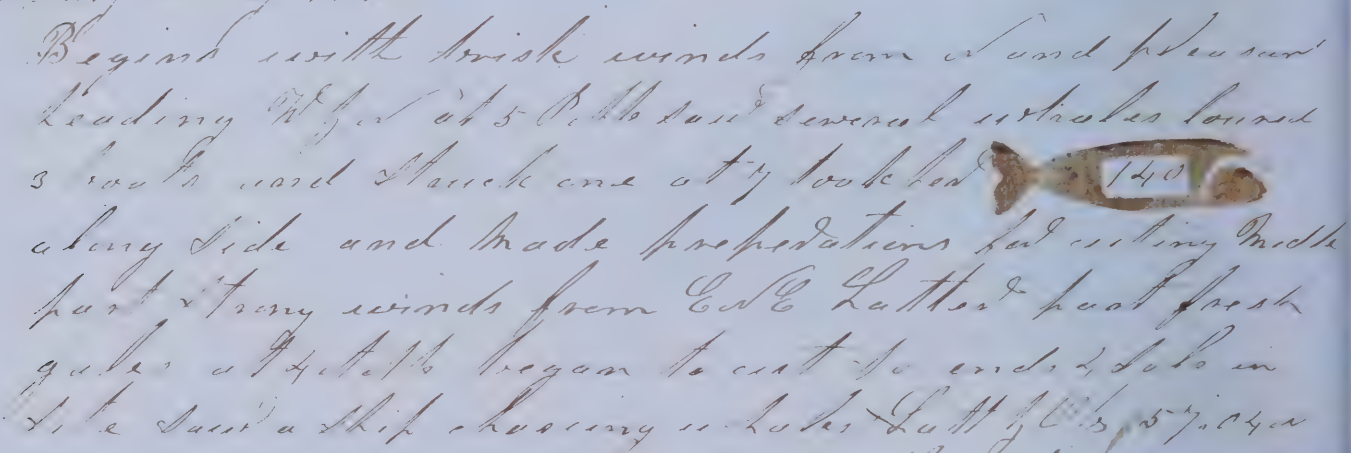 Begins with brisk winds from N and pleasant
heading W by N at 5 P.M. saw several whales lowred
3 boats and Struck one at 7 took her 140
along Side and Made preperations for cuting Midle
part Strong winds from ENE Latter part fresh
gales at 4 A.M. began to cut So ends 2 sols in
Site Saw a Ship chasing whales Latt by 57.04 N